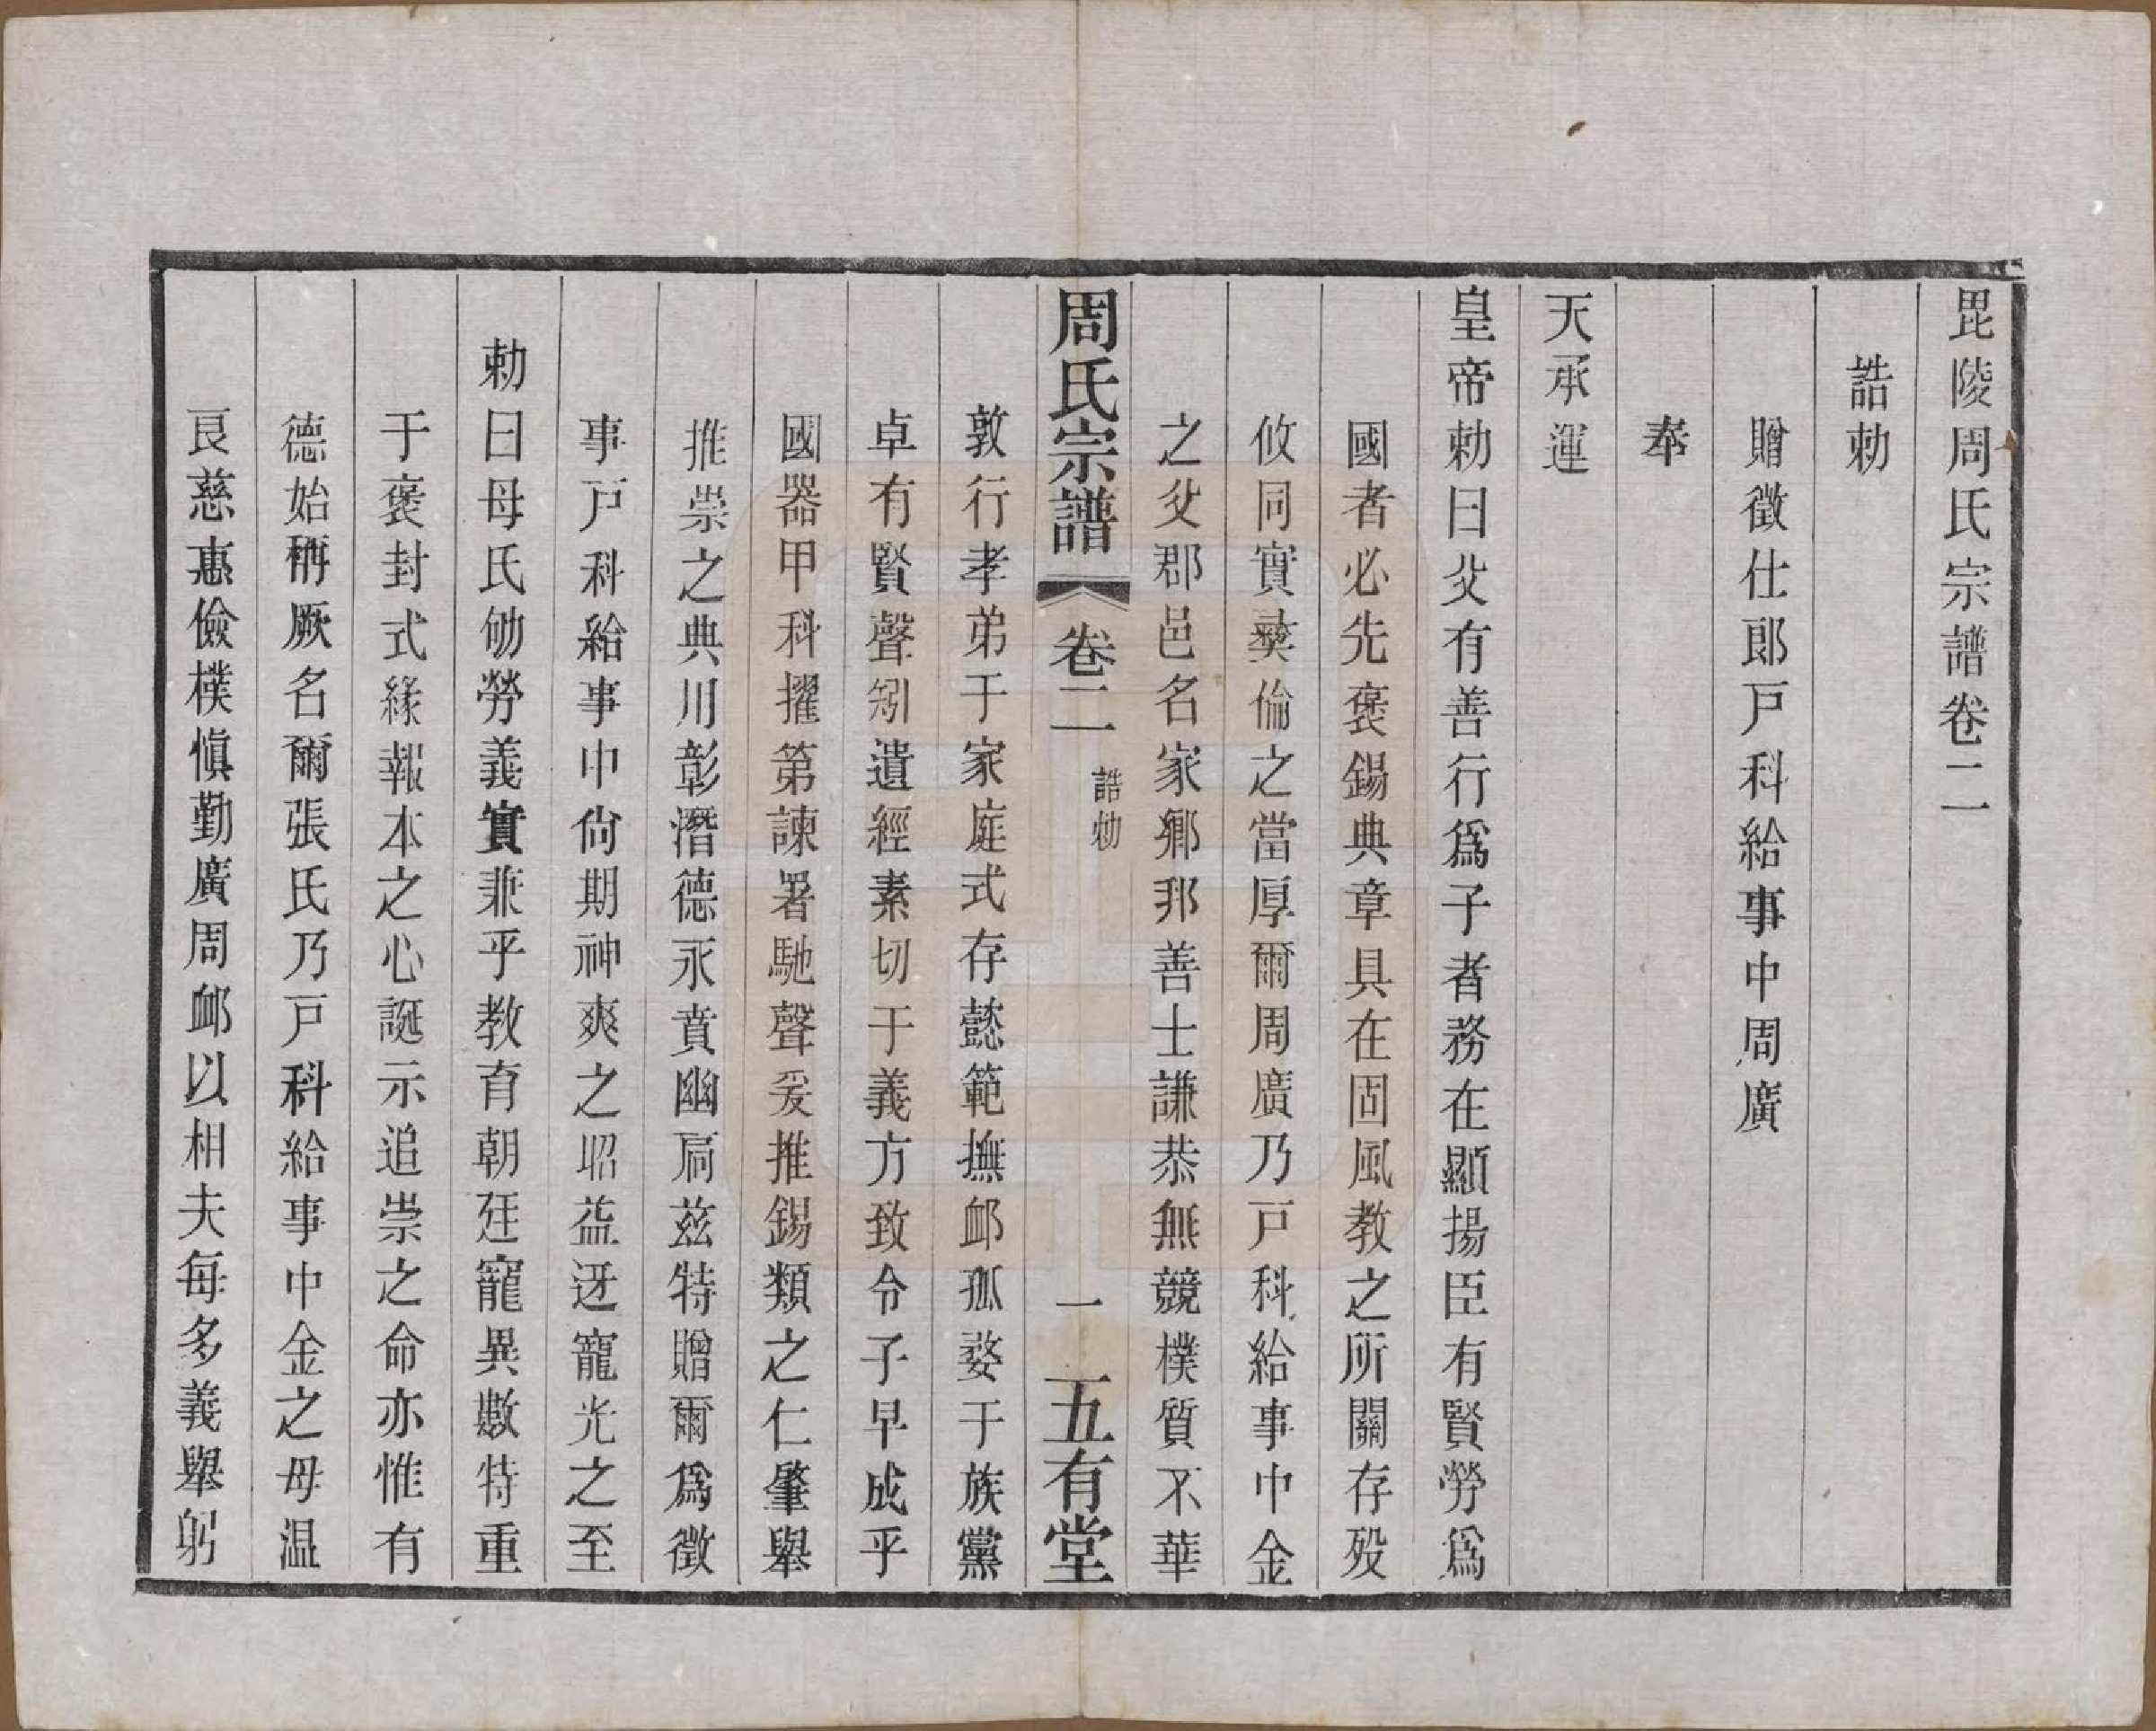 毘陵周氏宗譜卷二
誥勅
贈徵仕郎戸科給事中周廣
奉
天承運
皇帝勅曰父有善行爲子者務在顯揚臣有賢勞爲
國者必先褒錫典章具在固風教之所關存歿
攸同實彜倫之當厚爾周廣乃戸科給事中金
之父郡邑名家鄉邦善士謙恭無競樸質不華
周氏宗譜
卷二
誥勅
一
五有堂
敦行孝弟于家庭式存懿範撫䘏孤嫠于族黨
卓有賢聲矧遺經素切于義方致令子早成乎
國器甲科擢第諫署馳聲爰推錫類之仁肇舉
推崇之典用彰潛德永賁幽扃兹特贈爾爲徵
事戸科給事中尙期神爽之昭益迓寵光之至
勅曰母氏劬勞義實兼乎教育朝廷寵異數特重
于褒封式緣報本之心誕示追崇之命亦惟有
德始稱厥名爾張氏乃戸科給事中金之母温
良慈惠儉樸愼勤廣周䘏以相夫每多義舉躬